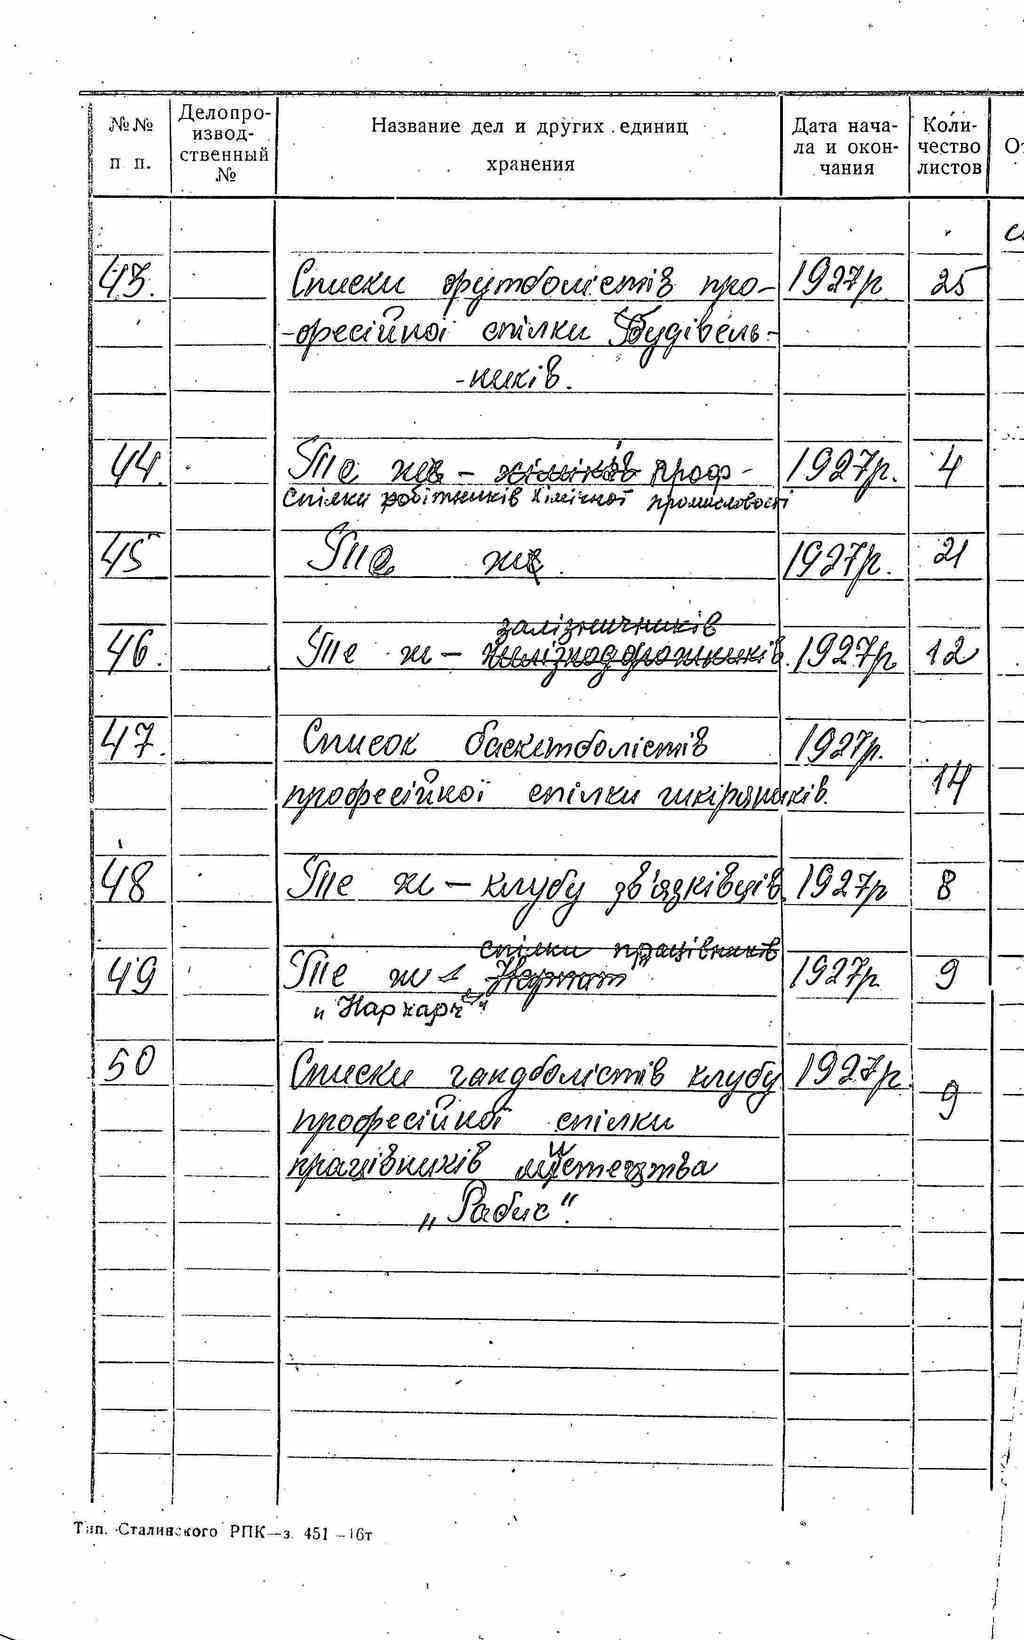 №№ п п.
Делопроизводственный №
Название дел и других единиц хранения
Дата начала и окончания
Количество листов
От
43. Списки футболістів про- 1927р 25
-фесійної спілки будівель-
-ників.
44. Те же – хіміків проф- 1927р. 4
спілки робітників хімічної промисловості
45 Те же. 1927р. 21
залізничників
46. Те ж – желізнодорожників. 1927р 12
47. Список баскетболістів 1927р.
професійної спілки шкіряників. 14
48 Те ж – клубу зв'язківців 1927р 8
спілки працівників
49 Те ж 1927р. 9
„Нархарч"
50 Списки гандболістів клубу 1927р. 9
професійної спілки
працівників мистецтва
„Рабис".
Тип. Сталинского РПК—з. 451 –16т